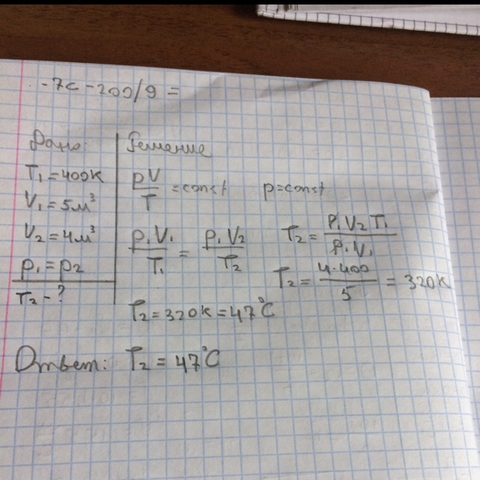 -7c-200/9=
Дано:
T₁=400K
V₁=5м³
V₂=4м³
p₁=p₂
T₂-?
Решение
pV/T=const p=const
p₁V₁/T₁=p₁V₂/T₂ T₂=p₁V₂T₁/p₁V₁
T₂=4·400/5=320K
T₂=320K=47°C
Ответ: T₂=47°C